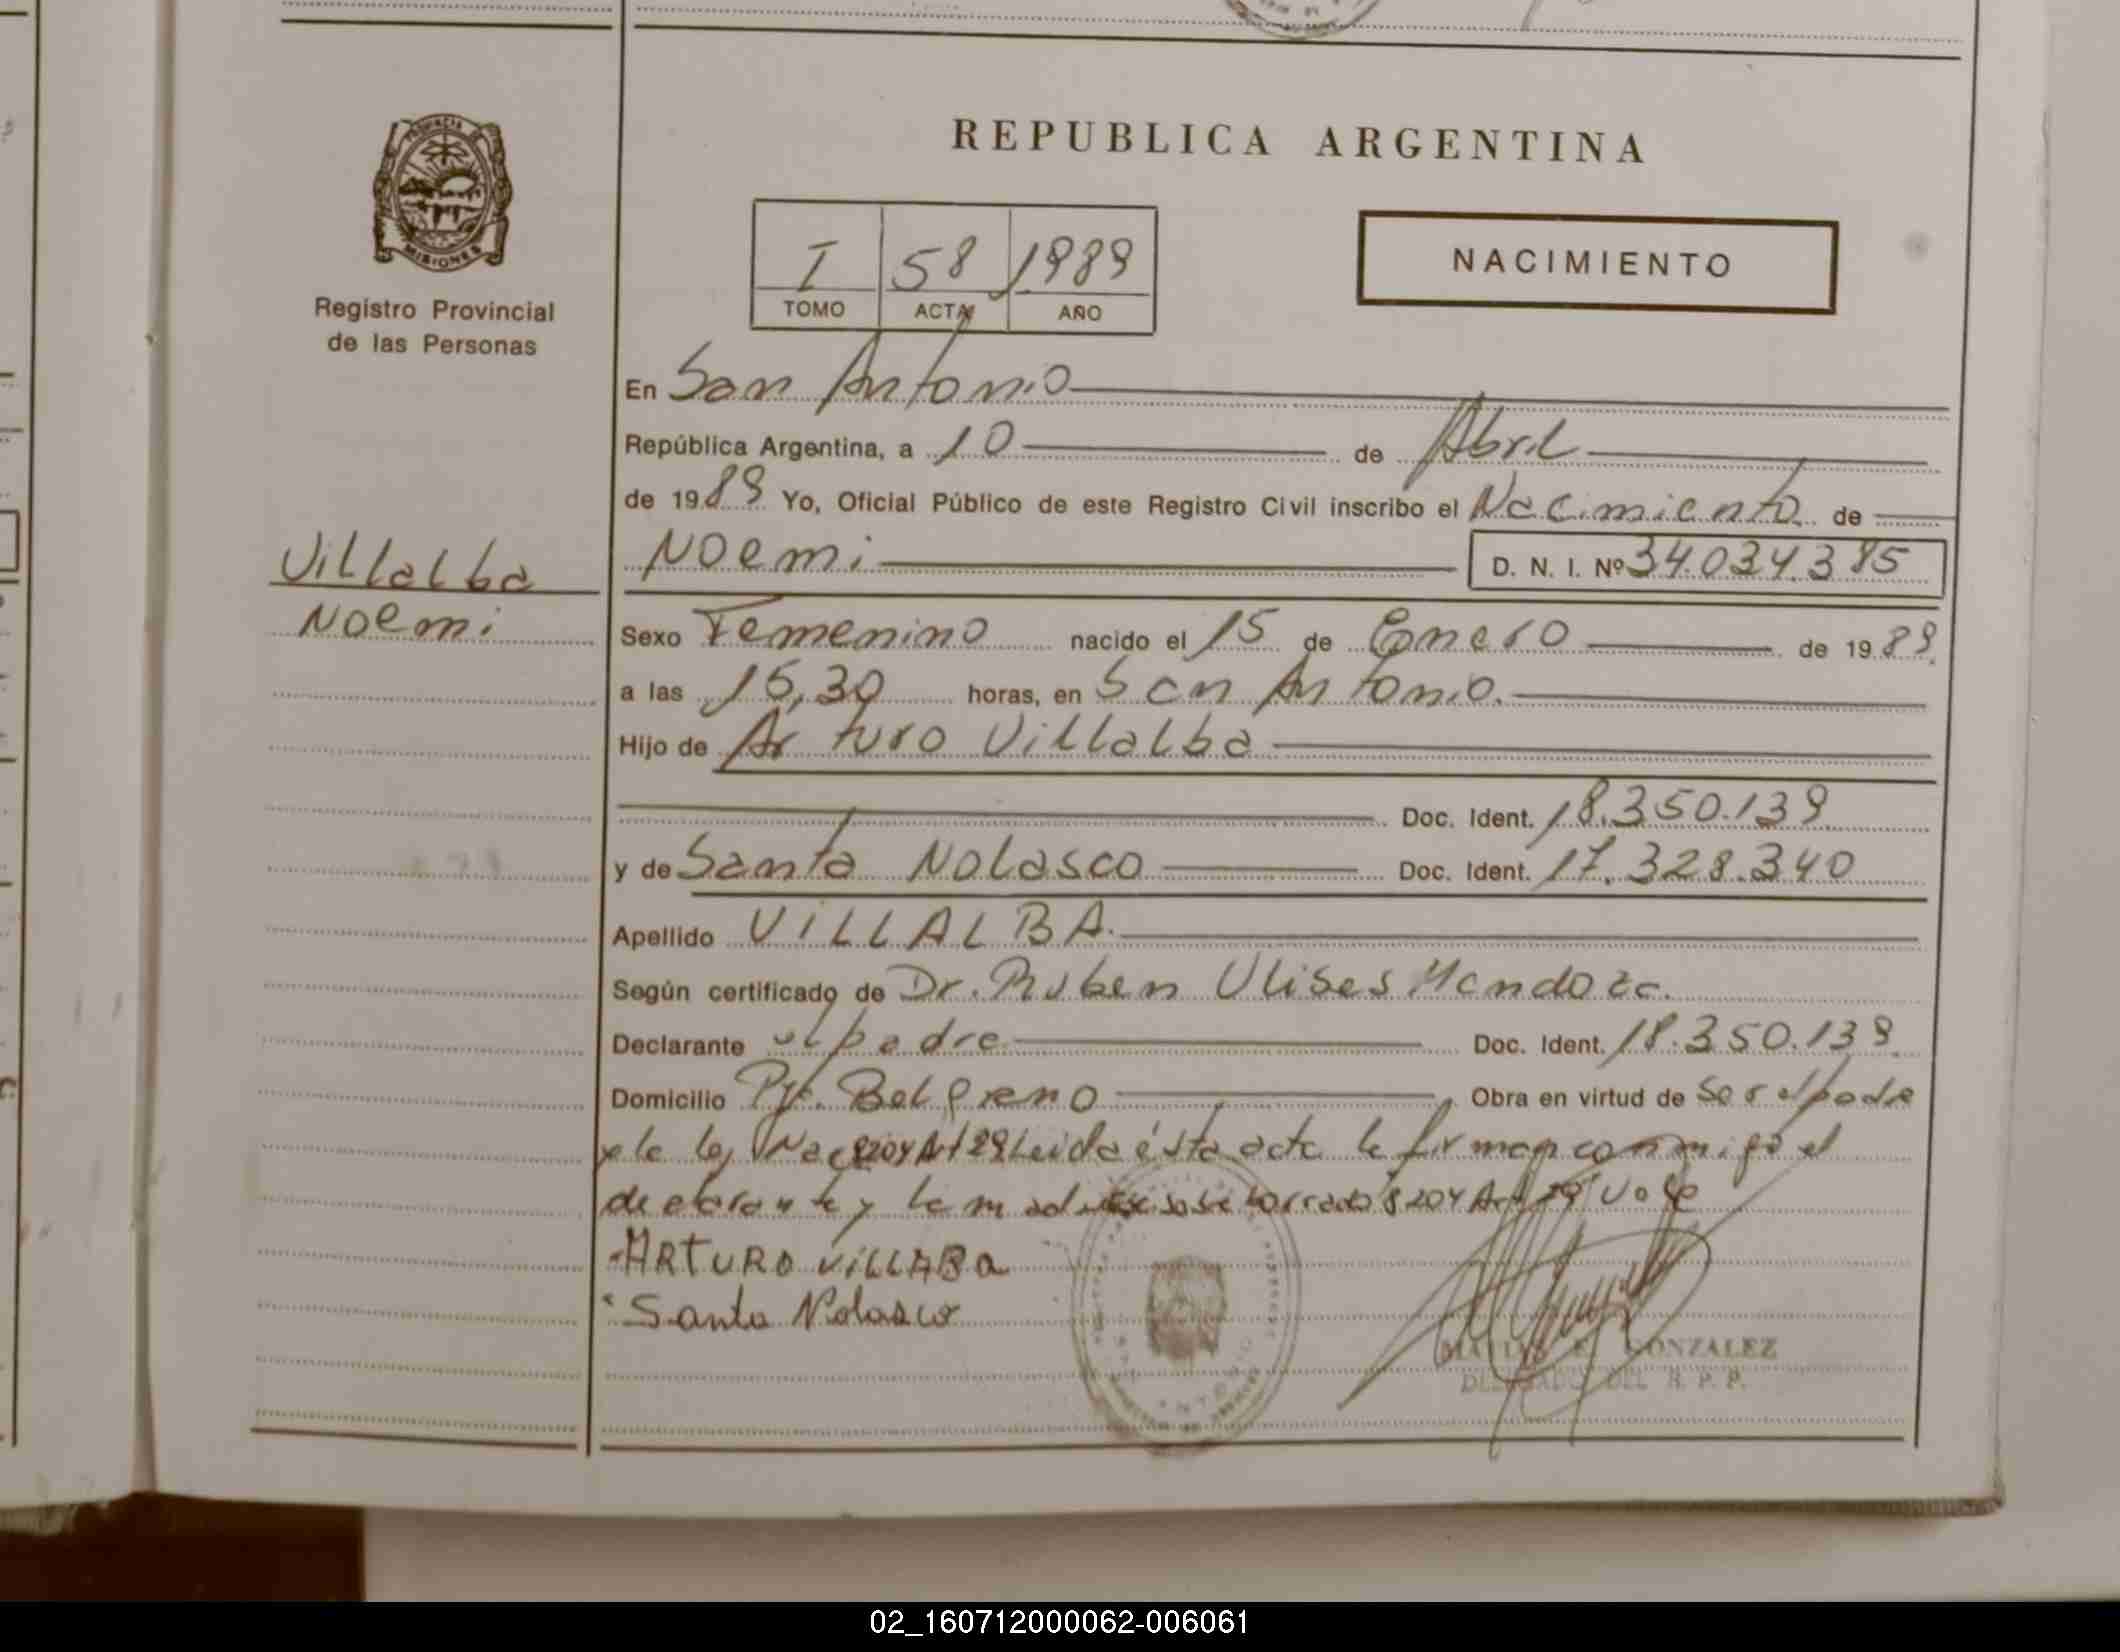 REPUBLICA ARGENTINA
PROVINCIA DE
MISIONES
Registro Provincial
de las Personas
I 58 1989
TOMO ACTA AÑO
NACIMIENTO
En San Antonio
República Argentina, a 10 de Abril
de 1989 Yo, Oficial Público de este Registro Civil inscribo el Nacimiento de
Noemi D. N. I. Nº 34.034.385
Villalba
Noemi
Sexo Femenino nacido el 15 de Enero de 1989.
a las 15,30 horas, en San Antonio.
Hijo de Arturo Villalba
Doc. Ident. 18.350.139
y de Santa Nolasco Doc. Ident. 17.328.340
Apellido VILLALBA.
Según certificado de Dr. Ruben Ulises Mendoza.
Declarante el padre Doc. Ident. 18.350.139
Domicilio Pje. Belgrano Obra en virtud de ser el padre
y la ley Nac 8204 Art 29 Leida ésta acta la firman conmigo el
declarante y la madre sobre borrado 8204 Art 29 Vale
ARTURO VILLABA
Santa Nolasco
GONZALEZ
DELEGADO DEL R. P. P.
02_160712000062-006061